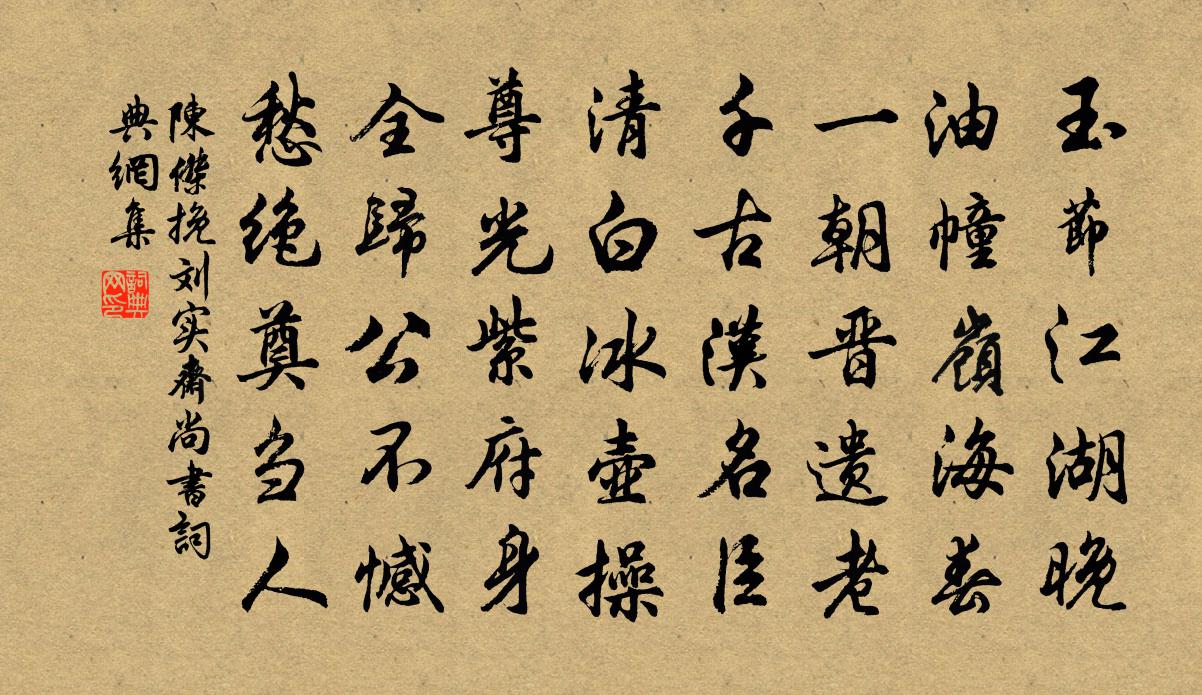 玉節江湖晚
油幢嶺海春
一朝晋遗老
千古漢名臣
清白冰壺操
尊光紫府身
全歸公不憾
愁绝奠刍人
陳傑挽刘实齋尚書詞
典網集
詞典网印